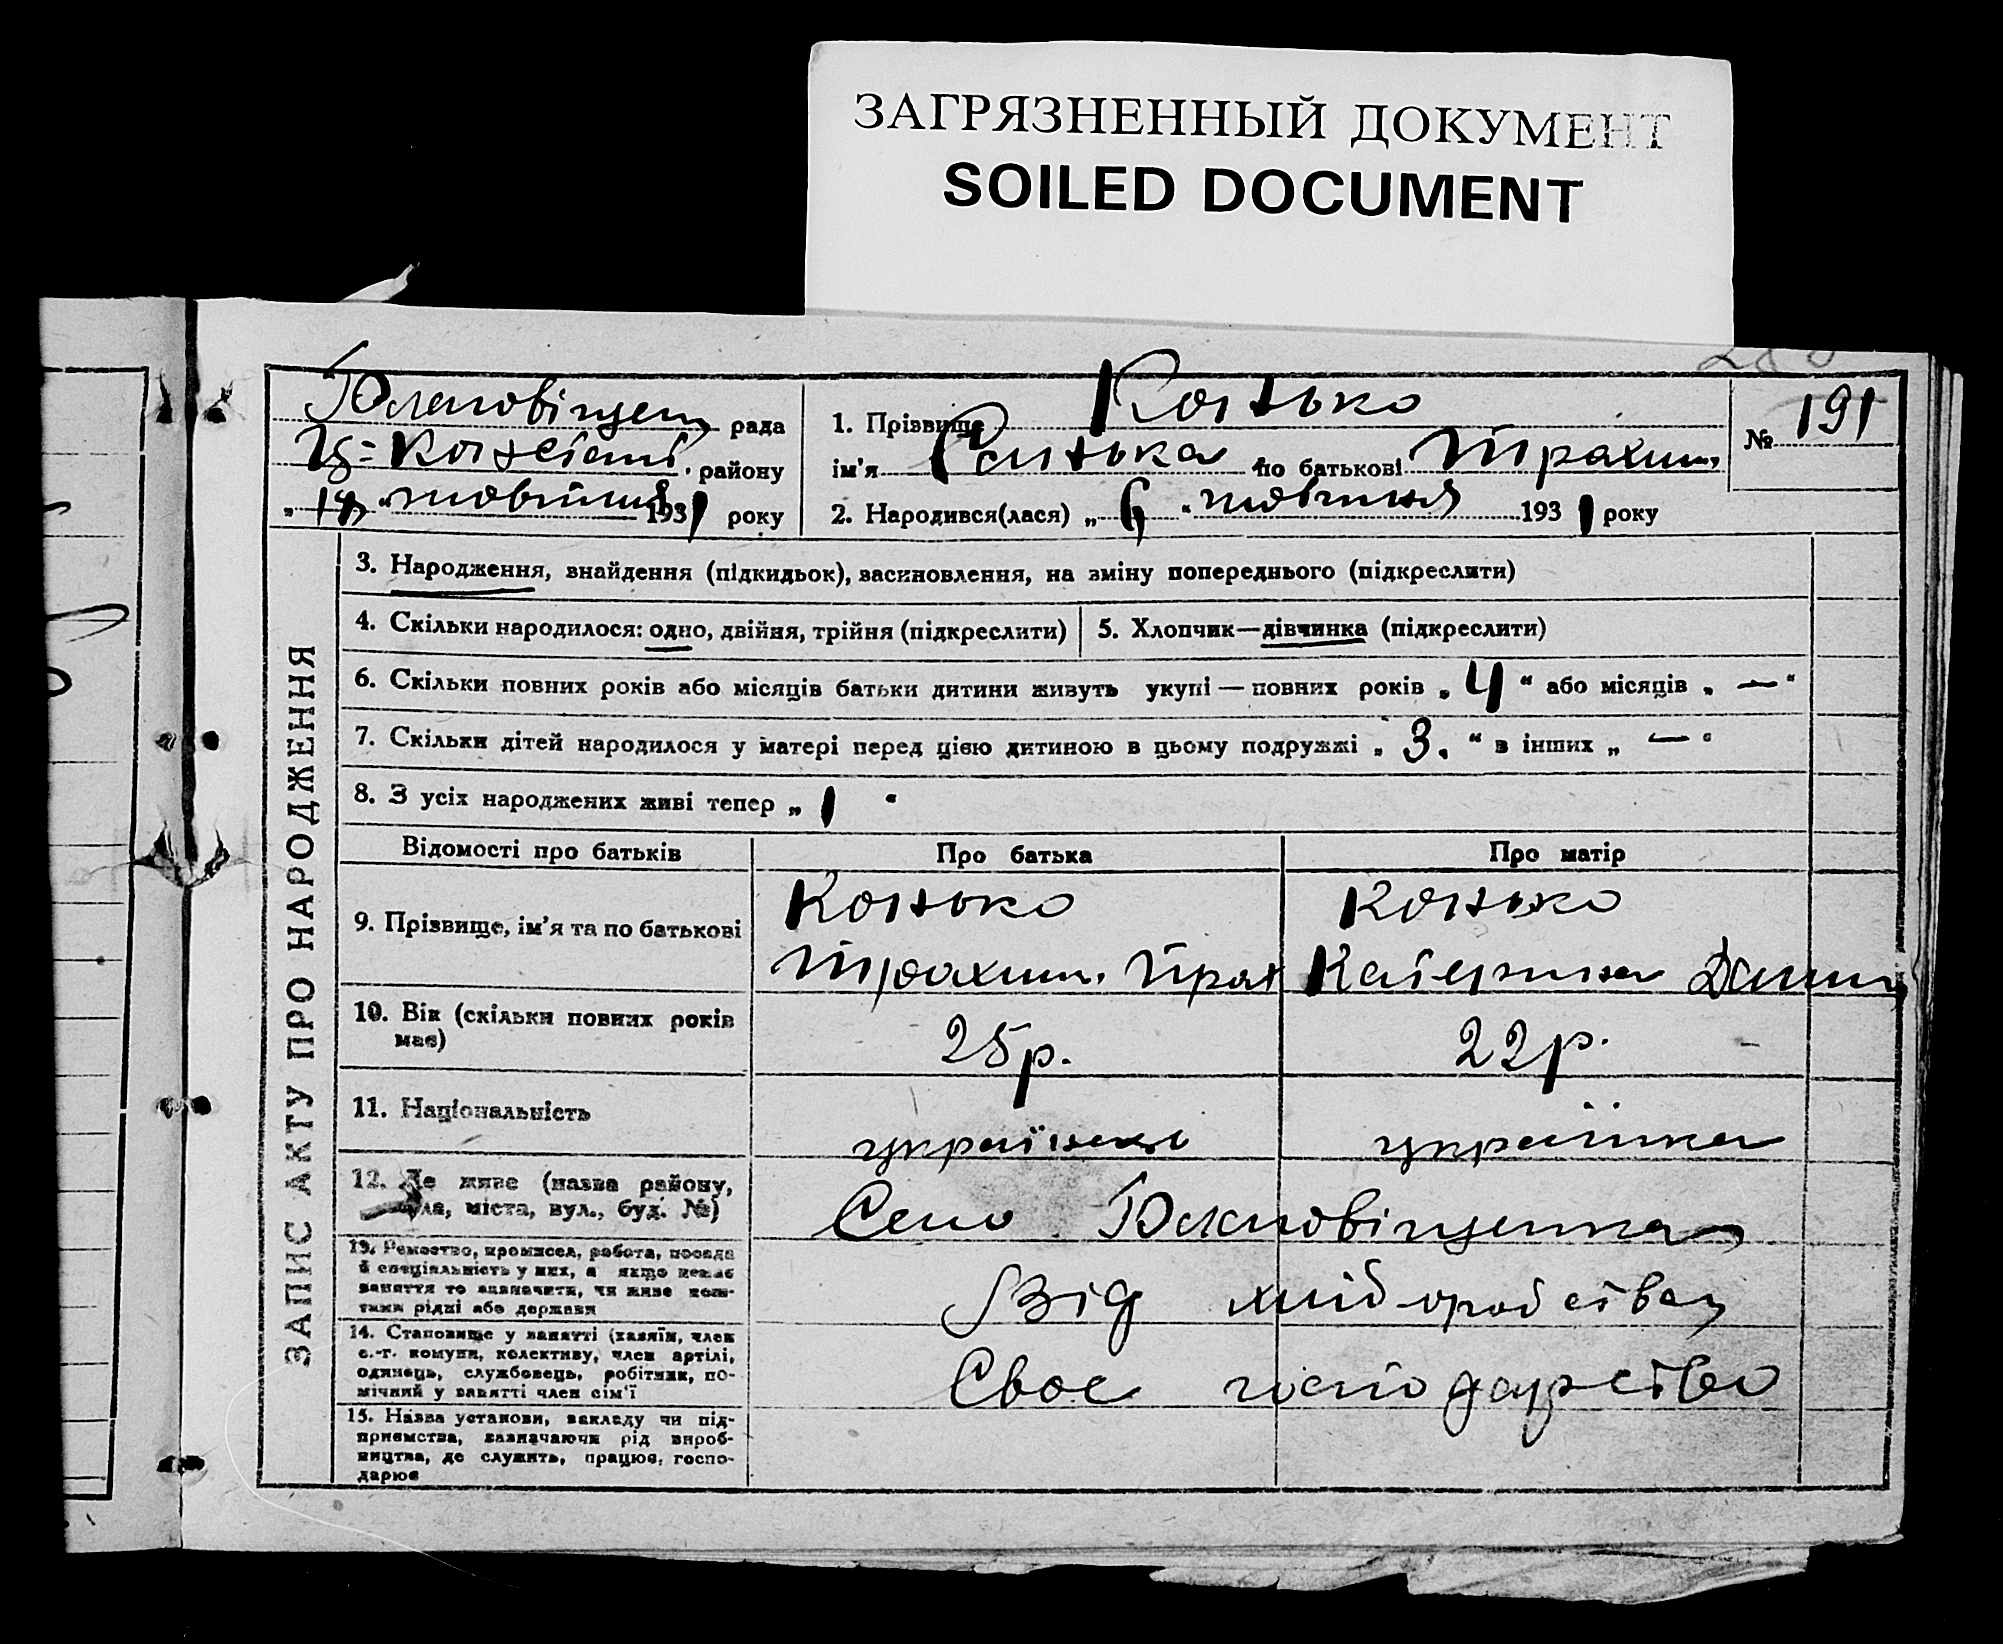 ЗАГРЯЗНЕННЫЙ ДОКУМЕНТ
SOILED DOCUMENT
рада
району
1931 року
1. Прізвище Конько
ім'я Санька по батькові Трахим.
2. Народився(лася) „6“ жовтня 1931 року
№ 191
ЗАПИС АКТУ ПРО НАРОДЖЕННЯ
3. Народження, знайдення (підкидьок), засиновлення, на зміну попереднього (підкреслити)
4. Скільки народилося: одно, двійня, трійня (підкреслити)
5. Хлопчик—дівчинка (підкреслити)
6. Скільки повних років або місяців батьки дитини живуть укупі — повних років „4“ або місяців „—“
7. Скільки дітей народилося у матері перед цією дитиною в цьому подружжі „3.“ в інших „—“
8. З усіх народжених живі тепер „1“
Відомості про батьків Про батька Про матір
9. Прізвище, ім'я та по батькові
Конько Конько
Трахим. Катерина
10. Вік (скільки повних років має)
25р. 22р.
11. Національність
українець українка
12. Де живе (назва району, села, міста, вул., буд. №)
Село
13. Ремество, промисел, робота, посада й спеціальність у них, а якщо немає заняття то зазначити, чи живе коштами рідні або держави
Від хліборобства
14. Становище у занятті (хазяїн, член с.-г. комуни, колективу, член артілі, одинець, службовець, робітник, помічний у занятті член сім'ї
Своє господарство
15. Назва установи, закладу чи підприємства, зазначаючи рід виробництва, де служить, працює, господарює